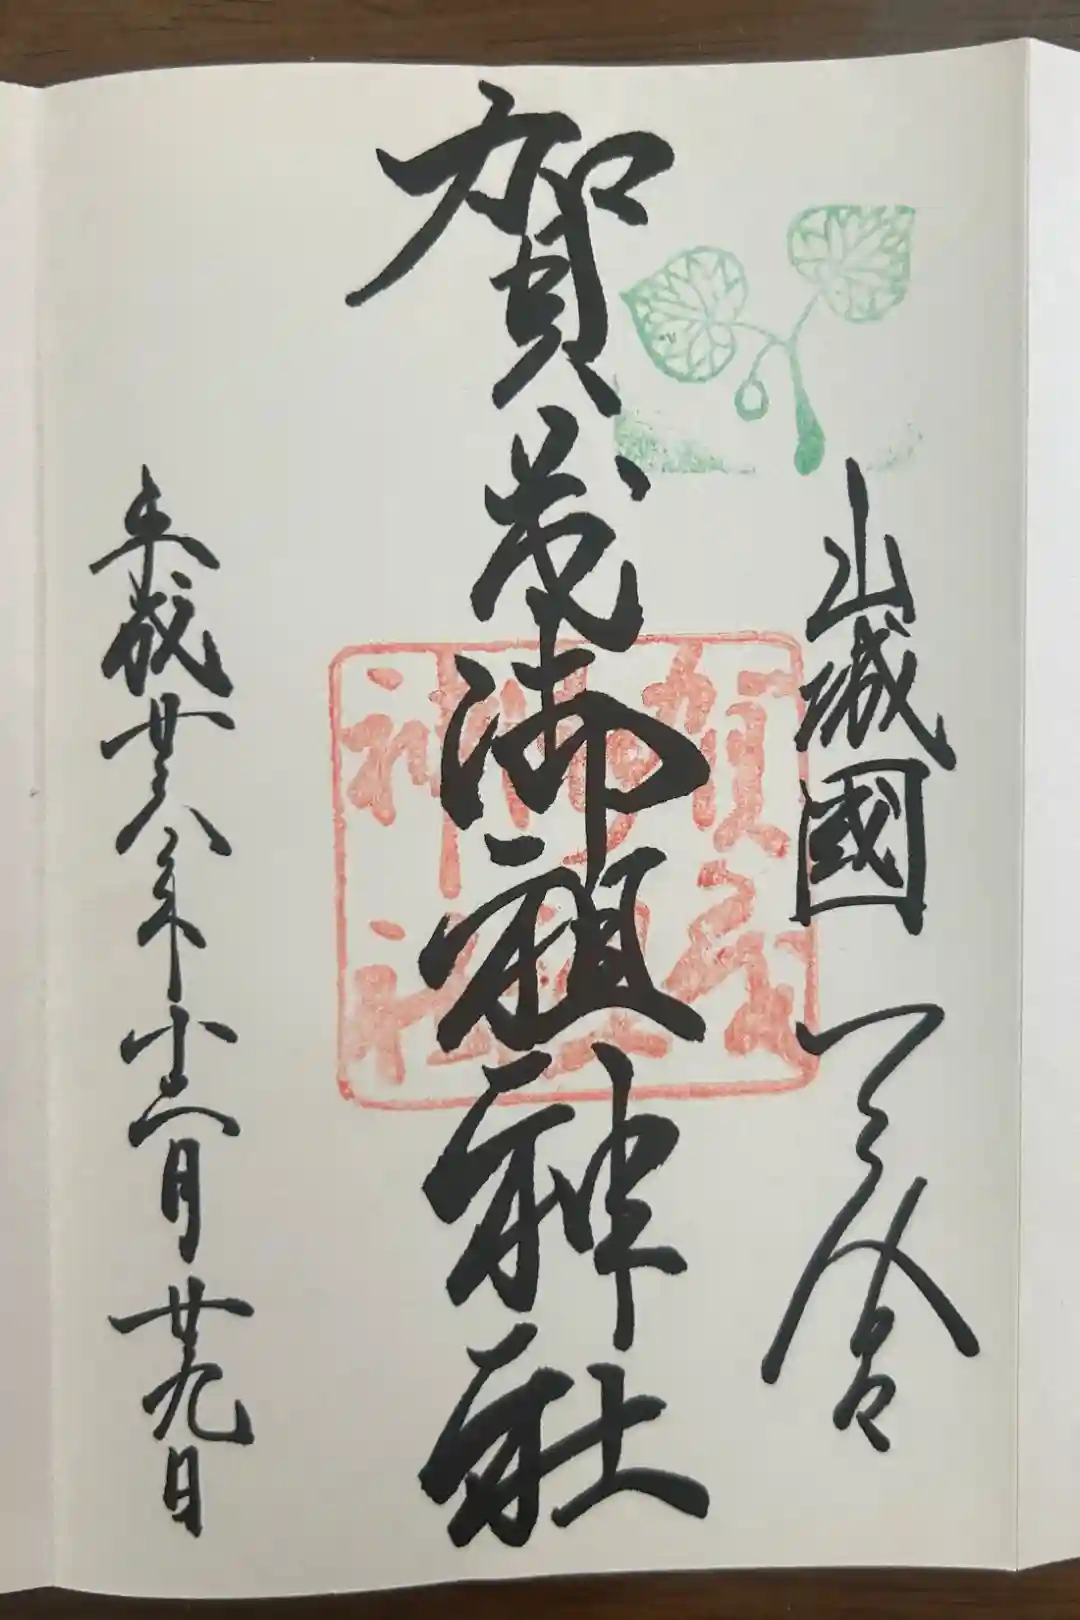 山城國 一之宮
賀茂御祖神社
平成廿八年十二月廿九日
賀茂
御祖
神社